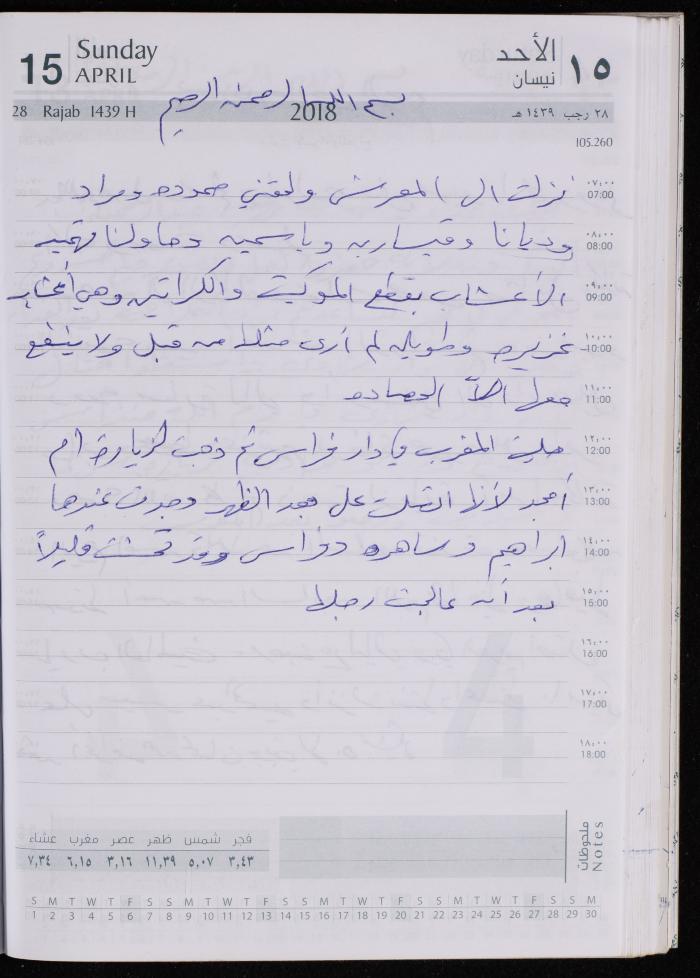 15 Sunday APRIL الأحد نيسان ١٥
28 Rajab 1439 H 2018 ٢٨ رجب ١٤٣٩ هـ
بسم الله الرحمن الرحيم
105.260
٠٧:٠٠ 07:00 نزلت ال المعرش ولحقتني حموده ومراد
٠٨:٠٠ 08:00 وديانا وقيساريه وياسمين وحاولنا
٠٩:٠٠ 09:00 الأعشاب بقطع الموكيت والكراتين وهي أعشاب
١٠:٠٠ 10:00 غزيره وطويله لم أرى مثلها من قبل ولا ينفع
١١:٠٠ 11:00 معها الاّ الحصاده
١٢:٠٠ 12:00 صليت المغرب في دار فراس ثم ذهبت لزيارة ام
١٣:٠٠ 13:00 أمجد لأنها اتصلت علي بعد الظهر وجدت عندها
١٤:٠٠ 14:00 ابراهيم وساهره وفراس وقد تحسنت قليلاً
١٥:٠٠ 15:00 بعد أن عالجت رجلها
١٦:٠٠ 16:00
١٧:٠٠ 17:00
١٨:٠٠ 18:00
ملحوظات Notes
فجر شمس ظهر عصر مغرب عشاء
٣,٤٣ ٥,٠٧ ١١,٣٩ ٣,١٦ ٦,١٥ ٧,٣٤
S M T W T F S S M T W T F S S M T W T F S S M T W T F S S M
1 2 3 4 5 6 7 8 9 10 11 12 13 14 15 16 17 18 19 20 21 22 23 24 25 26 27 28 29 30